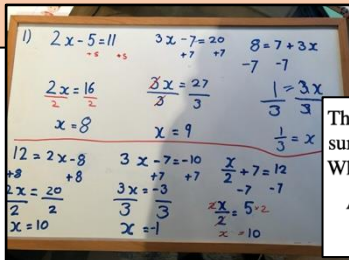 1) 2x-5=11
+5 +5
2x=16
2 2
x=8
3x-7=20
+7 +7
3x=27
3 3
x=9
8=7+3x
-7 -7
1=3x
3 3
1/3=x
12=2x-8
+8 +8
2x=20
2 2
x=10
3x-7=-10
+7 +7
3x=-3
3 3
x=-1
x/2+7=12
-7 -7
2x/2=5×2
x=10
Th
sur
W